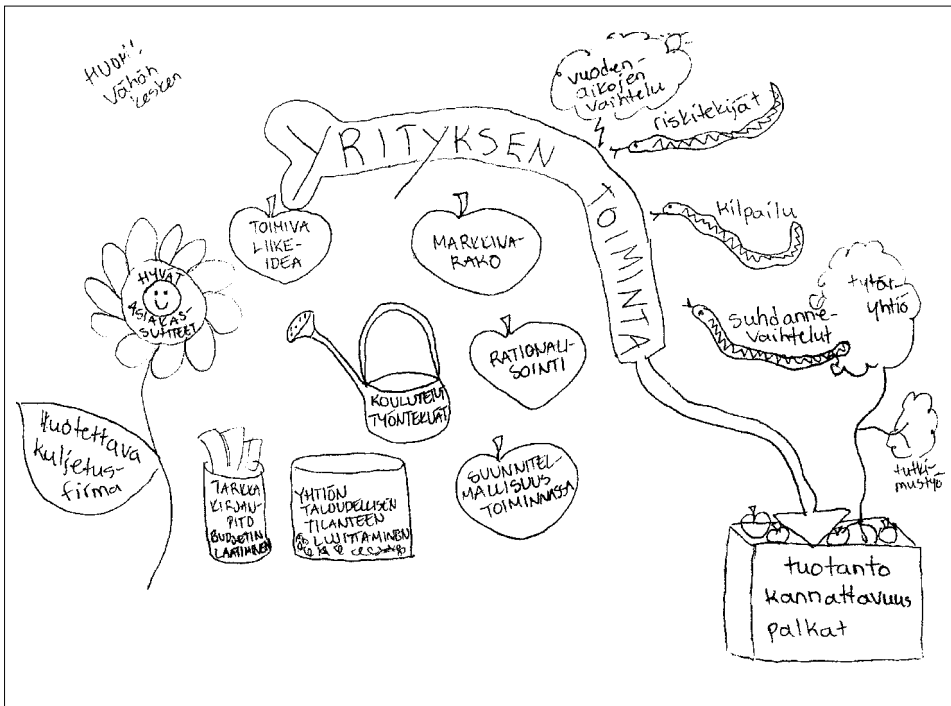 HUOM!!
vähän
kesken
vuoden-
aikojen
vaihtelu
riskitekijät
YRITYKSEN
TOIMINTA
kilpailu
TOIMIVA
LIIKE-
IDEA
MARKKINA-
RAKO
HYVÄT
ASIAKAS-
SUHTEET
suhdanne-
vaihtelut
tytär-
yhtiö
RATIONALI-
SOINTI
KOULUTETUT
TYÖNTEKIJÄT
Luotettava
kuljetus-
firma
TARKKA
KIRJAN-
PITO
BUDJETIN
LAATIMINEN
YHTIÖN
TALOUDELLISEN
TILANTEEN
LUJITTAMINEN
SUUNNITEL-
MALLISUUS
TOIMINNASSA
tutki-
mustyö
tuotanto
kannattavuus
palkat